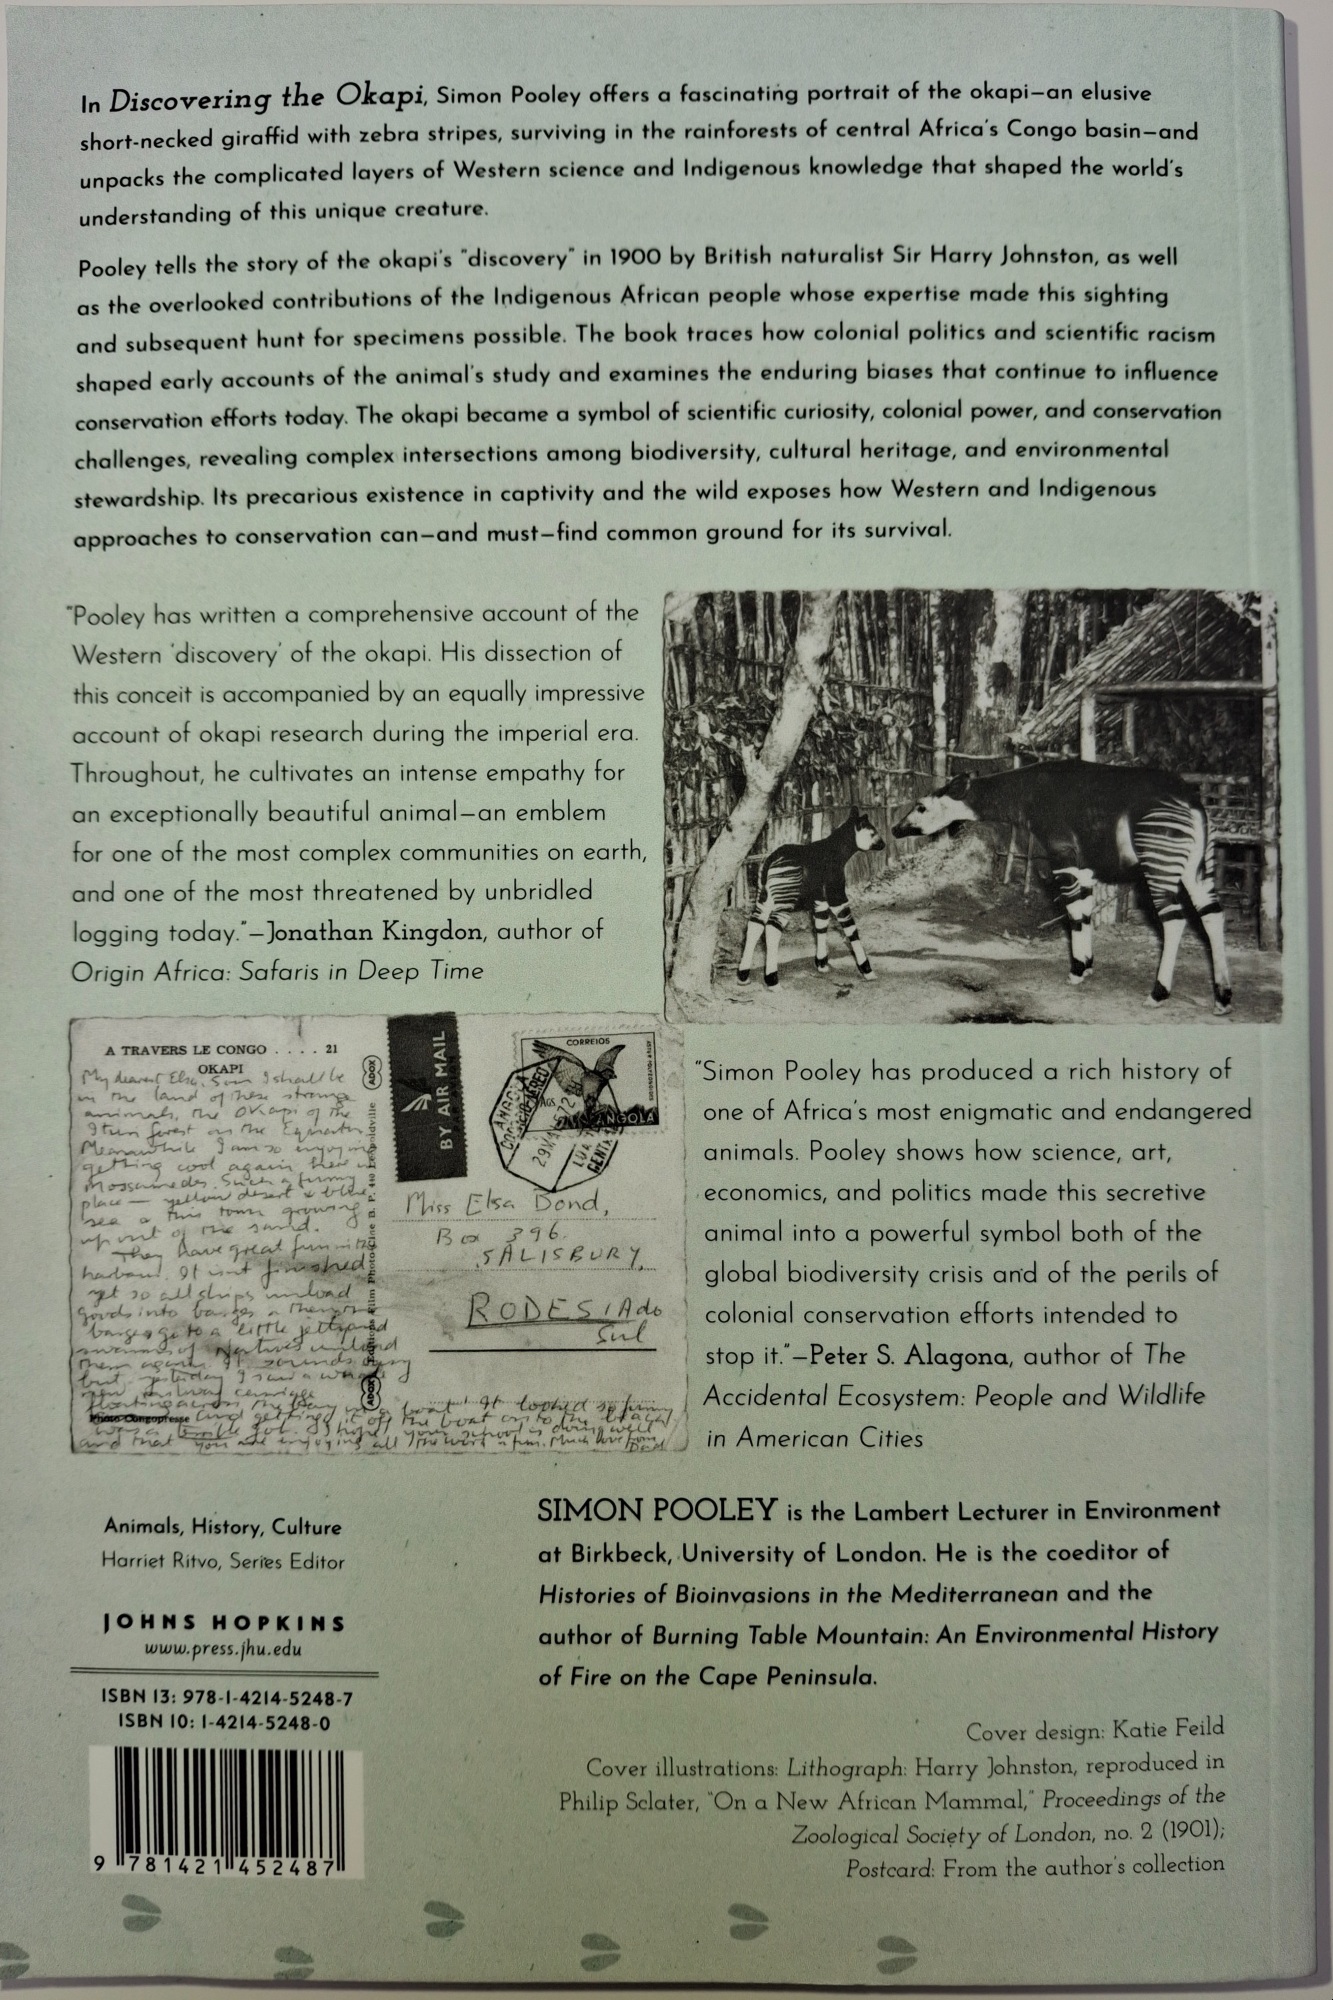 In Discovering the Okapi, Simon Pooley offers a fascinating portrait of the okapi—an elusive
short-necked giraffid with zebra stripes, surviving in the rainforests of central Africa's Congo basin—and
unpacks the complicated layers of Western science and Indigenous knowledge that shaped the world's
understanding of this unique creature.
Pooley tells the story of the okapi's "discovery" in 1900 by British naturalist Sir Harry Johnston, as well
as the overlooked contributions of the Indigenous African people whose expertise made this sighting
and subsequent hunt for specimens possible. The book traces how colonial politics and scientific racism
shaped early accounts of the animal's study and examines the enduring biases that continue to influence
conservation efforts today. The okapi became a symbol of scientific curiosity, colonial power, and conservation
challenges, revealing complex intersections among biodiversity, cultural heritage, and environmental
stewardship. Its precarious existence in captivity and the wild exposes how Western and Indigenous
approaches to conservation can—and must—find common ground for its survival.
"Pooley has written a comprehensive account of the
Western 'discovery' of the okapi. His dissection of
this conceit is accompanied by an equally impressive
account of okapi research during the imperial era.
Throughout, he cultivates an intense empathy for
an exceptionally beautiful animal—an emblem
for one of the most complex communities on earth,
and one of the most threatened by unbridled
logging today."—Jonathan Kingdon, author of
Origin Africa: Safaris in Deep Time
A TRAVERS LE CONGO . . . . 21
OKAPI
My dearest Elsa, Soon I shall be
in the land of these strange
animals, the Okapi of the
Ituri forest on the Equator.
Meanwhile I am so enjoying
getting cool again, here in
Mossamedes. Such a funny
place — yellow desert & blue
sea & this town growing
up out of the sand.
They have great fun in the
harbour. It isnt finished
yet so all ships unload
goods into barges & then the
barges go to a little jetty and
swarms of Natives unload
them again. It sounds easy
but yesterday I saw a whole
new railway carriage
floating across the bay on a boat! It looked so funny
Photo Congopresse and getting it off the boat on to the beach
was a terrible job. I hope your school is doing well
and that you are enjoying all the work & fun. Much love from
Dad
ADOX
ADOX
BY AIR MAIL
CORREIOS
ANGOLA
ANGOLA
Miss Elsa Dond,
Box 396.
SALISBURY,
RODESIA do
Sul
"Simon Pooley has produced a rich history of
one of Africa's most enigmatic and endangered
animals. Pooley shows how science, art,
economics, and politics made this secretive
animal into a powerful symbol both of the
global biodiversity crisis and of the perils of
colonial conservation efforts intended to
stop it."—Peter S. Alagona, author of The
Accidental Ecosystem: People and Wildlife
in American Cities
Animals, History, Culture
Harriet Ritvo, Series Editor
JOHNS HOPKINS
www.press.jhu.edu
ISBN 13: 978-1-4214-5248-7
ISBN 10: 1-4214-5248-0
9 781421 452487
SIMON POOLEY is the Lambert Lecturer in Environment
at Birkbeck, University of London. He is the coeditor of
Histories of Bioinvasions in the Mediterranean and the
author of Burning Table Mountain: An Environmental History
of Fire on the Cape Peninsula.
Cover design: Katie Feild
Cover illustrations: Lithograph: Harry Johnston, reproduced in
Philip Sclater, "On a New African Mammal," Proceedings of the
Zoological Society of London, no. 2 (1901);
Postcard: From the author's collection